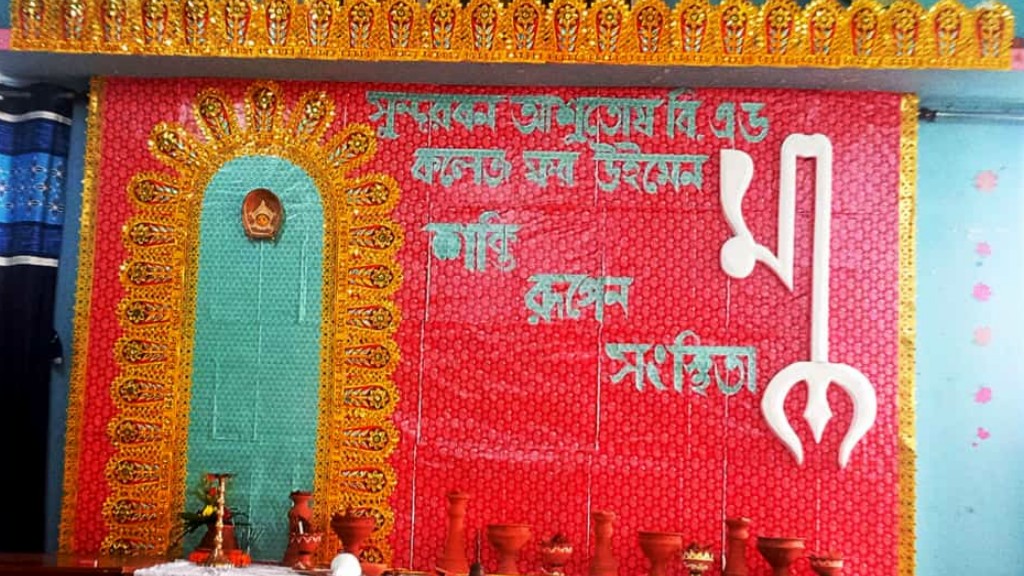 সুন্দরবন আশুতোষ বি.এড
কলেজ ফর উইমেন
শক্তি
রূপেন
সংস্থিতা
মা